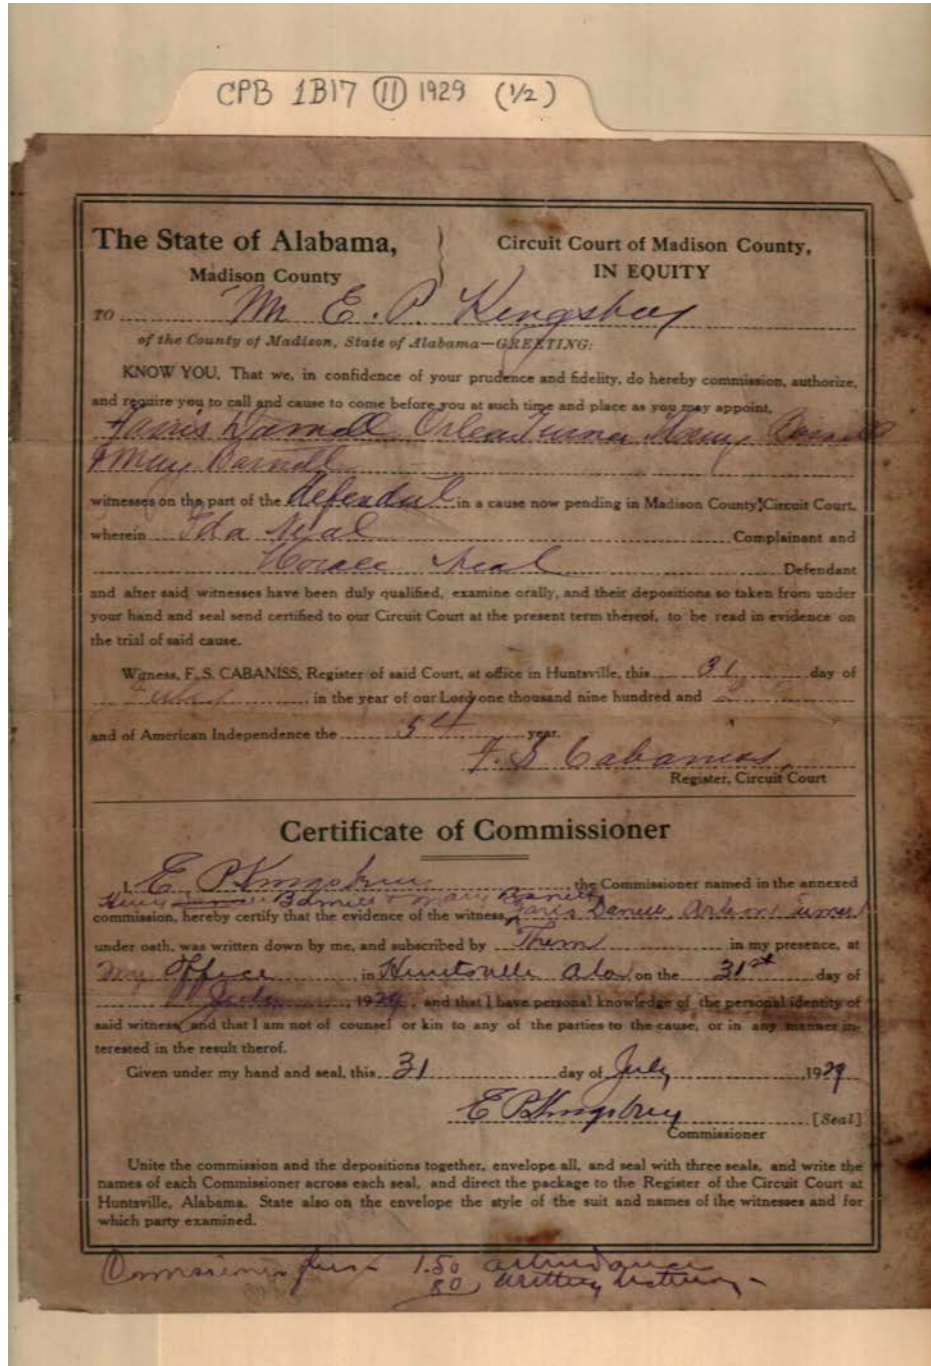 CPB 1B17 (11) 1929 (1/2)
The State of Alabama,
Madison County
Circuit Court of Madison County,
IN EQUITY
TO Mr E. P. Kingsbury
of the County of Madison, State of Alabama—GREETING:
KNOW YOU, That we, in confidence of your prudence and fidelity, do hereby commission, authorize,
and require you to call and cause to come before you at such time and place as you may appoint,
Turner
witnesses on the part of the defendant in a cause now pending in Madison County Circuit Court,
wherein Ida Neal Complainant and
Horace Neal Defendant
and after said witnesses have been duly qualified, examine orally, and their depositions so taken from under
your hand and seal send certified to our Circuit Court at the present term thereof, to be read in evidence on
the trial of said cause.
Witness, F. S. CABANISS, Register of said Court, at office in Huntsville, this 31 day of
July in the year of our Lord one thousand nine hundred and 29
and of American Independence the 54 year.
F. S. Cabaniss,
Register, Circuit Court
Certificate of Commissioner
I, E P Kingsbury the Commissioner named in the annexed
commission, hereby certify that the evidence of the witness Turner
under oath, was written down by me, and subscribed by Them in my presence, at
my office in Huntsville Ala on the 31st day of
July, 1929, and that I have personal knowledge of the personal identity of
said witness, and that I am not of counsel or kin to any of the parties to the cause, or in any manner in-
terested in the result therof.
Given under my hand and seal, this 31 day of July, 1929
E P Kingsbury [Seal]
Commissioner
Unite the commission and the depositions together, envelope all, and seal with three seals, and write the
names of each Commissioner across each seal, and direct the package to the Register of the Circuit Court at
Huntsville, Alabama. State also on the envelope the style of the suit and names of the witnesses and for
which party examined.
Commissioners fees 1.50 attendance
80 writing